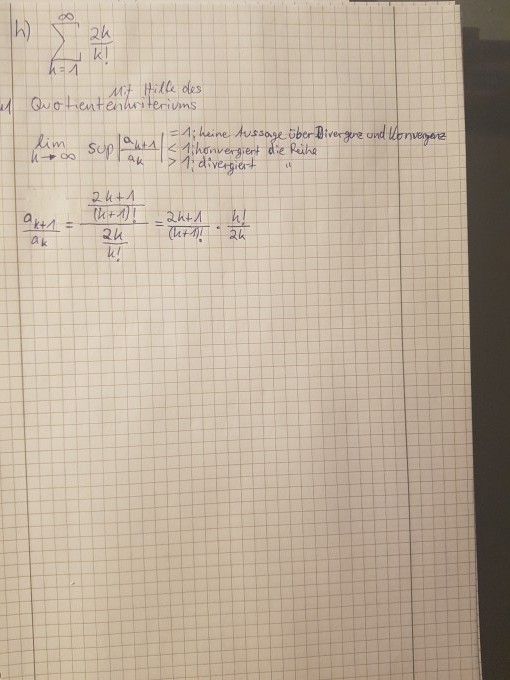 h) ∞ ∑ k=1 2k/k!
Mit Hilfe des
Quotientenkriteriums
lim k→∞ sup |a_{k+1}/a_k| = 1; keine Aussage über Divergenz und Konvergenz
< 1; konvergiert die Reihe
> 1; divergiert "
a_{k+1}/a_k = ((2k+1)/(k+1)!)/(2k/k!) = (2k+1)/(k+1)! · k!/2k